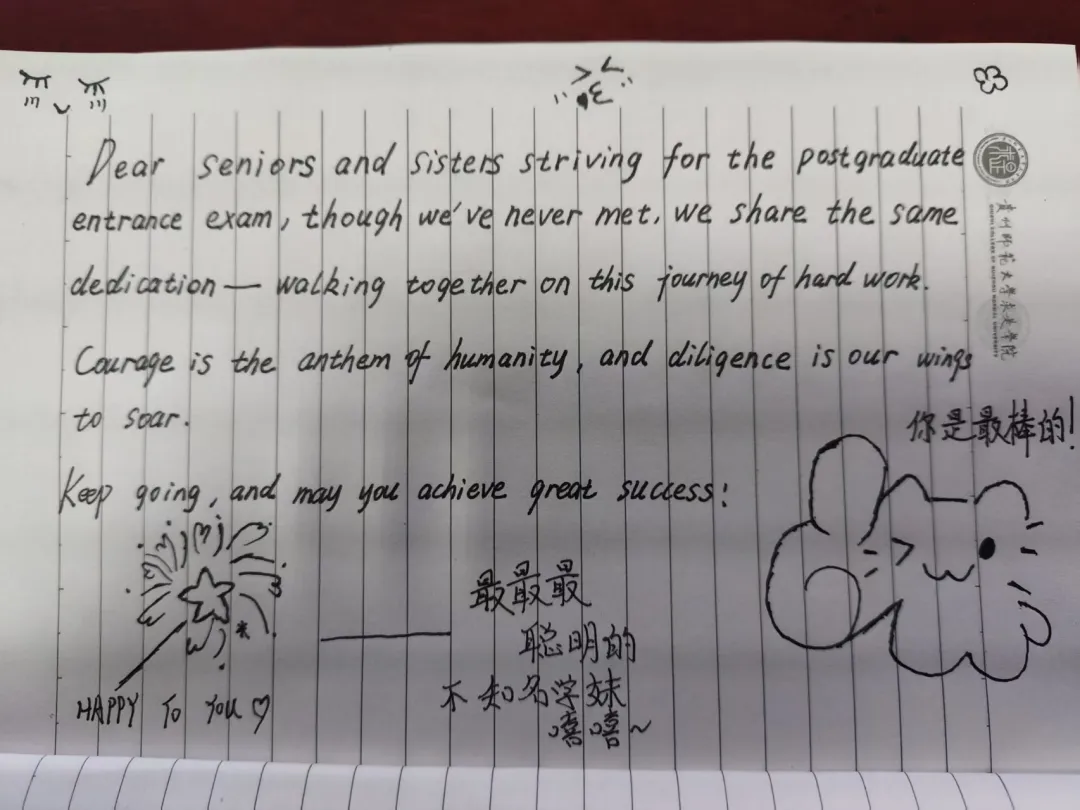 Dear seniors and sisters striving for the postgraduate
entrance exam, though we've never met, we share the same
dedication — walking together on this journey of hard work.
Courage is the anthem of humanity, and diligence is our wings
to soar.
Keep going, and may you achieve great success!
你是最棒的!
HAPPY TO YOU ♡
——最最最
聪明的
不知名学妹
嘻嘻~
贵州师范大学求是学院